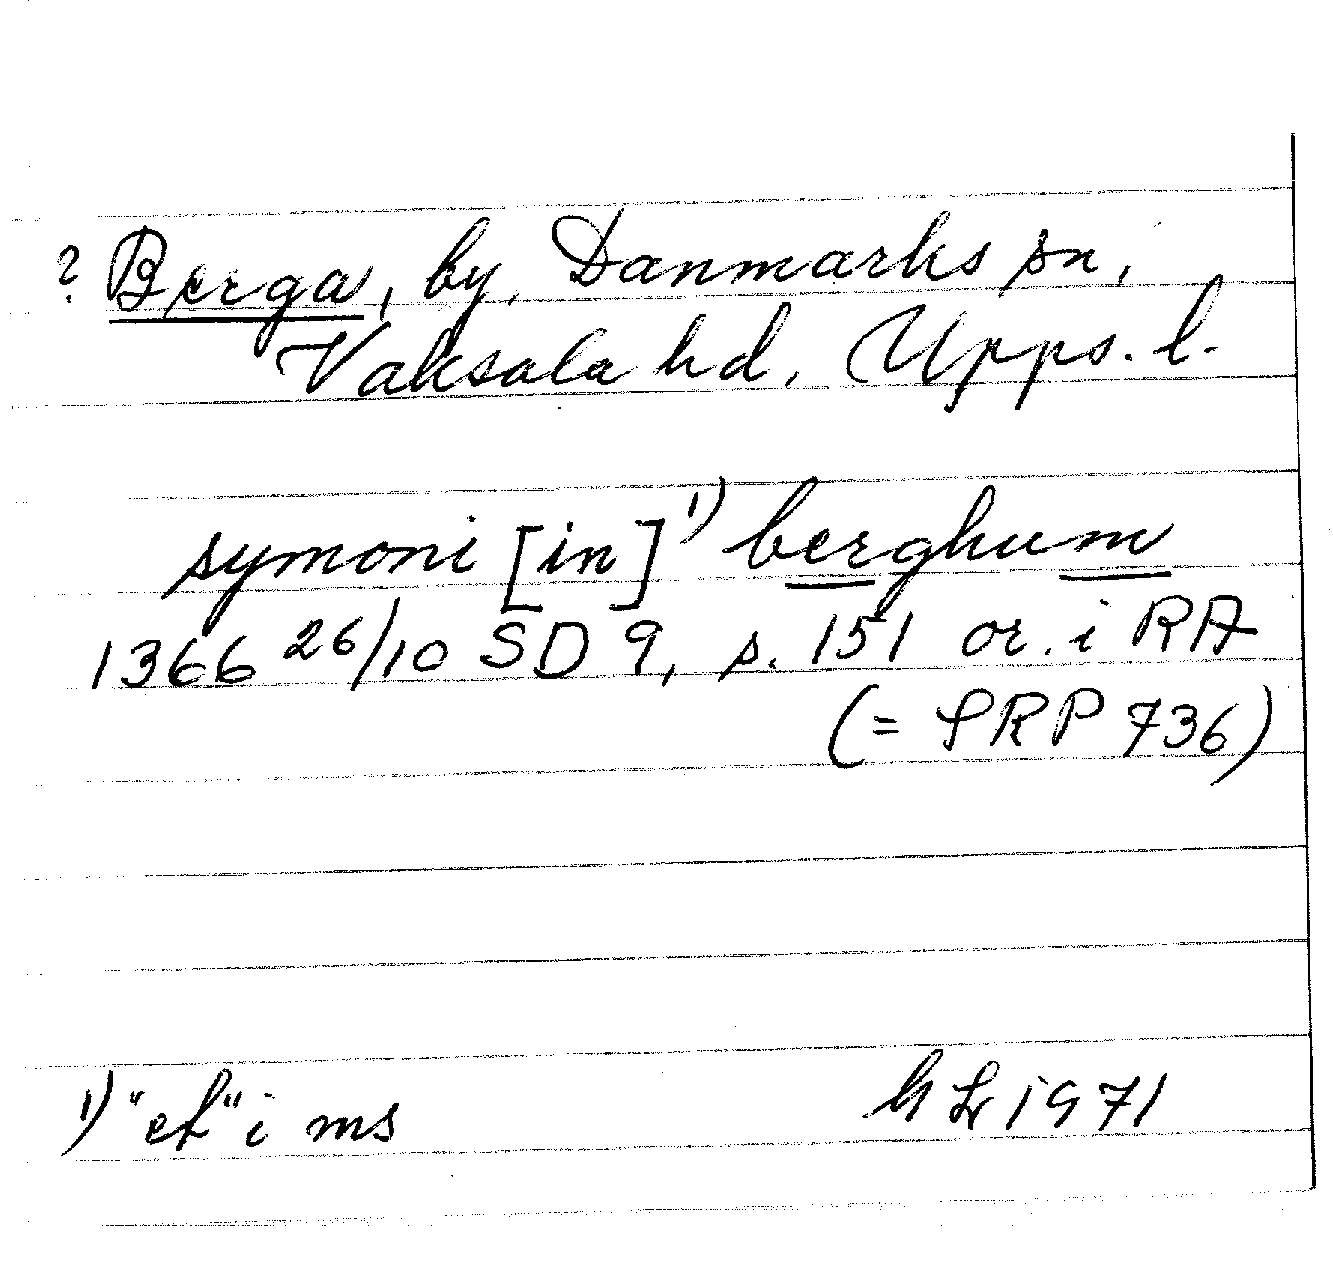 ? Berga, by, Danmarks sn,
Vaksala hd, Upps. l.
symoni [in]¹) berghum
1366 26/10 SD 9, s. 151 or. i RA
(= SRP 736)
1) "et" i ms
1971